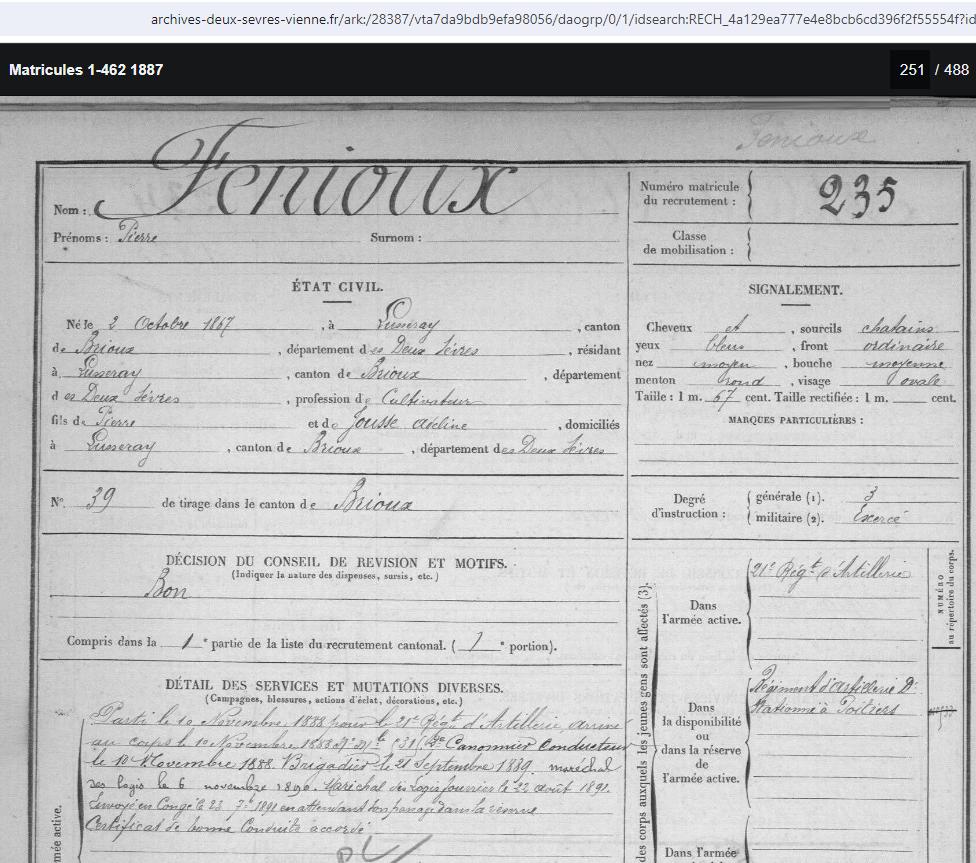 archives-deux-sevres-vienne.fr/ark:/28387/vta7da9bdb9efa98056/daogrp/0/1/idsearch:RECH_4a129ea777e4e8bcb6cd396f2f55554f?id
Matricules 1-462 1887
251 / 488
Fenioux
Nom : Fenioux
Prénoms : Pierre Surnom :
Numéro matricule du recrutement : 235
Classe de mobilisation :
ÉTAT CIVIL.
Né le 2 Octobre 1867, à Lusseray, canton
de Brioux, département des Deux Sèvres, résidant
à Lusseray, canton de Brioux, département
des Deux Sèvres, profession de Cultivateur
fils de Pierre et de Jousse Adeline, domiciliés
à Lusseray, canton de Brioux, département des Deux Sèvres
SIGNALEMENT.
Cheveux et, sourcils chatains
yeux bleus, front ordinaire
nez moyen, bouche moyenne
menton rond, visage ovale
Taille : 1 m. 67 cent. Taille rectifiée : 1 m. cent.
MARQUES PARTICULIÈRES :
N° 39 de tirage dans le canton de Brioux
Degré d'instruction : générale (1). 3
militaire (2). Exercé
DÉCISION DU CONSEIL DE REVISION ET MOTIFS.
(Indiquer la nature des dispenses, sursis, etc.)
Bon
Compris dans la 1e partie de la liste du recrutement cantonal. (1e portion).
DÉTAIL DES SERVICES ET MUTATIONS DIVERSES.
(Campagnes, blessures, actions d'éclat, décorations, etc.)
Parti le 10 Novembre 1888 pour le 21e Régt d'Artillerie, arrivé
au corps le 10 Novembre 1888 2e Canonnier Conducteur
le 10 Novembre 1888. Brigadier le 21 Septembre 1889. maréchal
des logis le 6 novembre 1890. Maréchal des Logis fourrier le 22 août 1891.
Envoyé en Congé le 23 7bre 1891 en attendant son passage dans la réserve
Certificat de bonne Conduite accordé
mée active.
des corps auxquels les jeunes gens sont affectés (3).
NUMÉRO
au répertoire du corps.
Dans l'armée active.
21e Régt d'Artillerie
Dans la disponibilité ou dans la réserve de l'armée active.
Régiment d'artillerie
Stationné à Poitiers
Dans l'armée